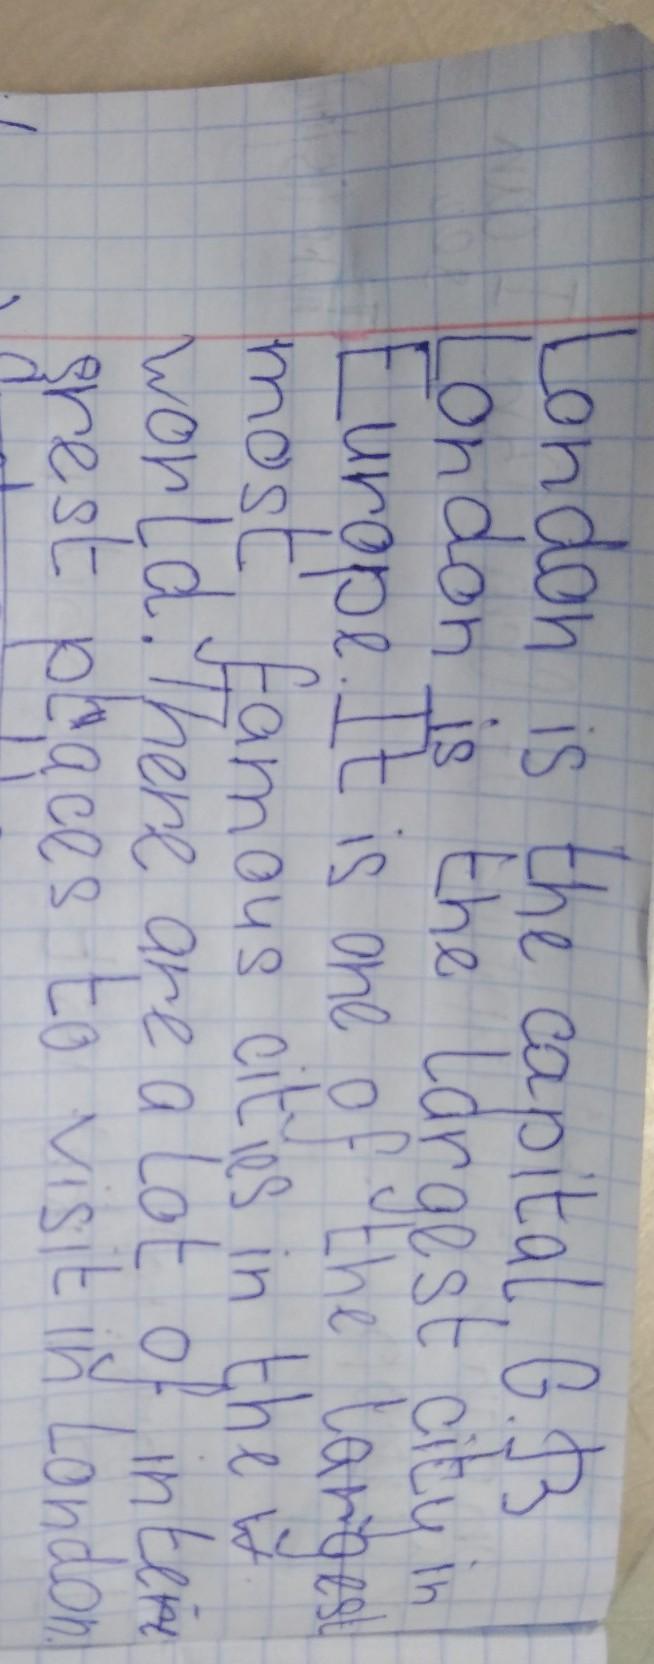 London is the capital G.B
London is the largest city in
Europe. It is one of the largest
most famous cities in the
world. There are a lot of inte
rest places to visit in London.